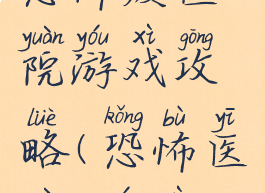 yuàn yóu xì gōng
院游戏攻
lüè kǒng bù yī
略(恐怖医